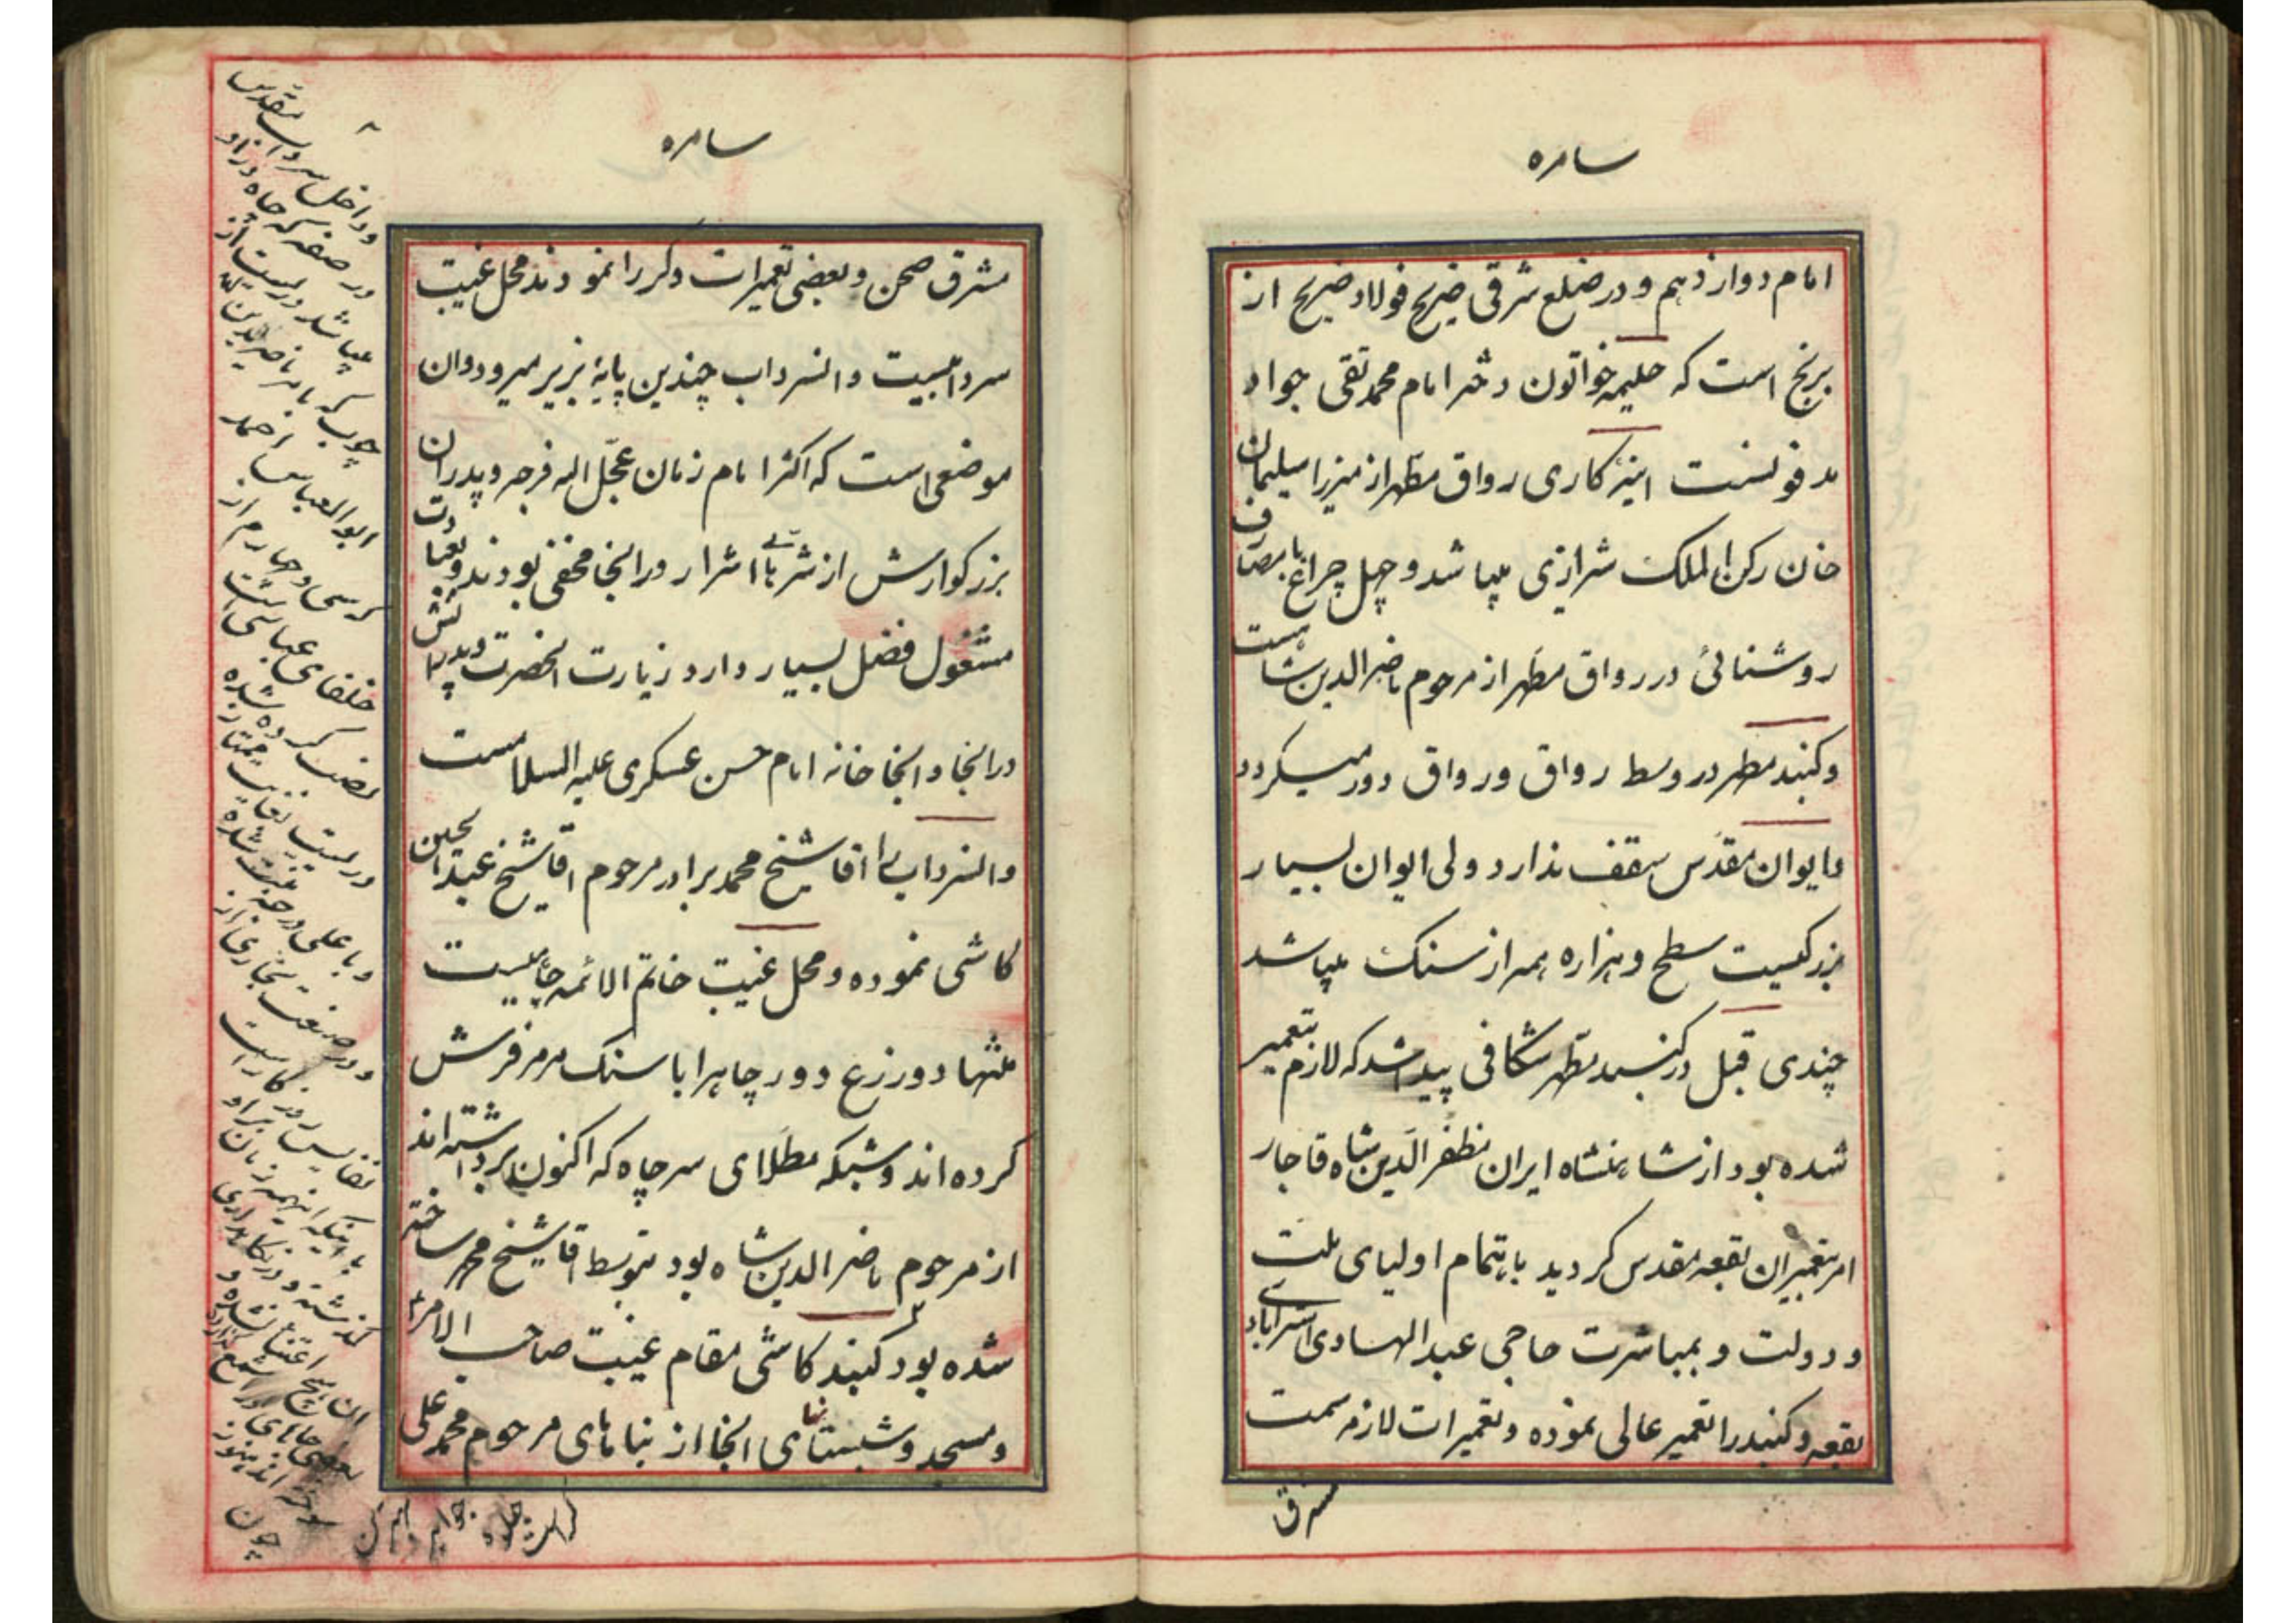 سامره
امام دوازدهم و در ضلع شرقی ضریح فولاد ضریح از
برنج است که حلیمه خواتون دختر امام محمد تقی جواد
مدفونست اینه کاری رواق مطهر از میرزا سلیمان
خان رکن الملک شیرازی میباشد و چهل چراغ با مصارف
روشنائی در رواق مطهر از مرحوم ناصر الدین شاهست
و کنبد مطهر در وسط رواق و رواق دور میکردد
و ایوان مقدس سقف ندارد ولی ایوان بسیار
بزرکیست سطح و هزاره همه از سنک میباشد
چندی قبل در کنبد مطهر شکافی پیدا شد که لازم بتعمیر
شده بود از شاهنشاه ایران مظفر الدین شاه قاجار
امر بتعمیر ان بقعه مقدس کردید باهتمام اولیای ملت
و دولت و بمباشرت حاجی عبد الهادی استرابادی
بقعه و کنبد را تعمیر عالی نموده و تعمیرات لازمه سمت
مشرق
سامره
مشرق صحن و بعضی تعمیرات دکر را نمودند محل غیبت
سردابیست و انسرداب چندین پایهٔ بزیر میرود و ان
موضعی است که اکثر امام زمان عجل اله فرجه و پدران
بزرکوارش از شر اشرار در انجا مخفی بودند و بعبادت
مشغول فضل بسیار دارد زیارت انحضرت و پدرانش
در انجا و انجا خانه امام حسن عسکری علیه السلامست
و انسرداب را اقا شیخ محمد برادر مرحوم اقا شیخ عبد الحسین
کاشی نموده و محل غیبت خاتم الائمه چاهیست
منتها دو زرع و دور چاه را با سنک مرمر فرش
کرده اند و شبکه مطلای سر چاه که اکنون برداشته اند
از مرحوم ناصر الدین شاه بود بتوسط اقا شیخ محمد ساخته
شده بود کنبد کاشی مقام غیبت صاحب الامر ع
و مسجد و شبستانهای انجا از بناهای مرحوم محمد علی
و داخل سرداب مقدس
در صفه که چاه در او
میباشد دریست از
چوب که بامر ناصر لدین الله
ابو العباس احمد
که سی و چهارم از
خلفای عباسی است
نصب کرده شده
دریست بغایت ممتاز
و در صنعت نجاری از
نفایس روزکار است
با اینکه اینهمه زمان بر او
کذشته و در نکاهداری
ان هیچ اعتنا نشده و
چون